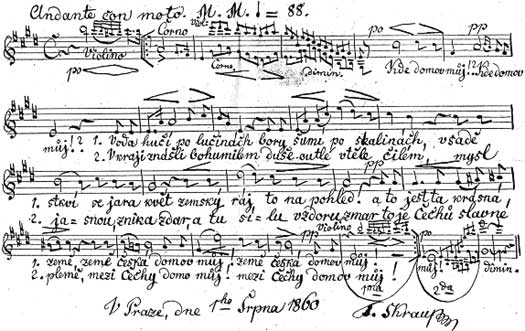 Andante con moto. M. M. ♩ = 88.
Corno Viol:
Violino
po Corno dimin. po pp
Kde domov můj!? Kde domov
můj!? 1. Voda hučí po lučinách bory šumí po skalinách, v sadě
2. V kraji znášli bohumilém duše outlé v těle čilém, mysl
pp
1. stkví se jara květ zemský ráj to na pohled! a to jest ta krásná,
2. ja=snou, znik a zdar, a tu sí=lu vzdoru zmar to je Čechů slavné
Violino
1. země, země česká domov můj! země česká domov můj!
2. plémě, mezi Čechy domov můj! mezi Čechy domov můj!
pp po
1ma můj! 2da dimin.
V Praze, dne 1ho Srpna 1860 F. Skraup